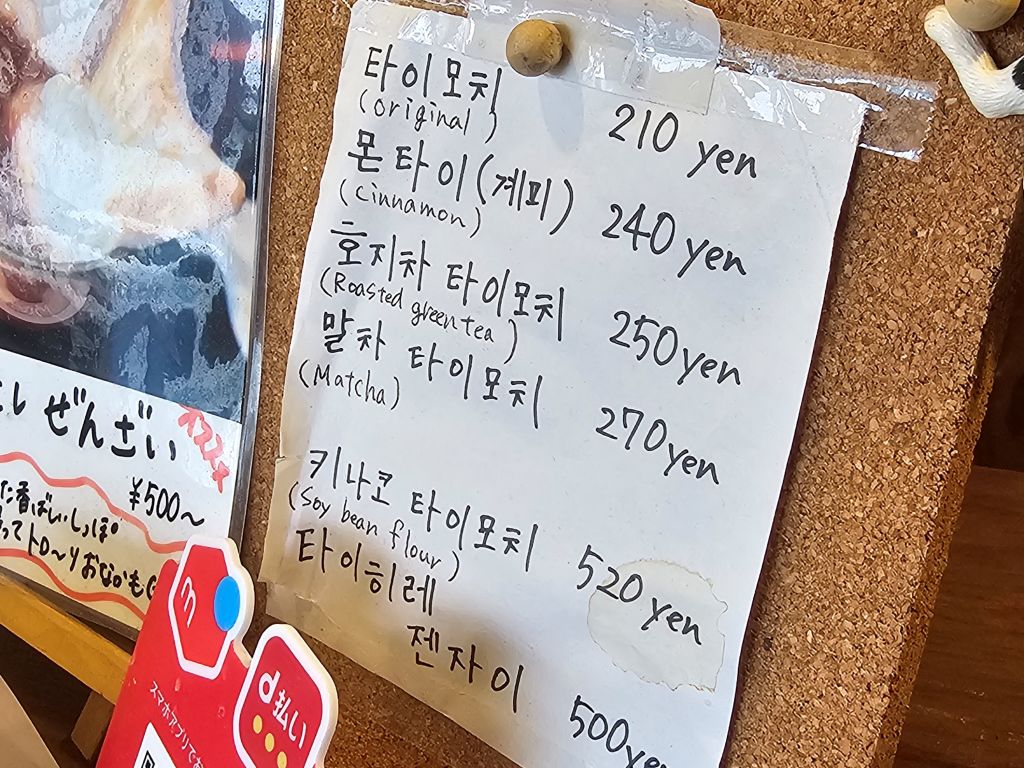 타이모치
(original)
210 yen
몬타이(계피)
(cinnamon)
240 yen
호지차 타이모치
(Roasted green tea)
250yen
말차 타이모치
(Matcha)
270yen
키나코 타이모치
(Soy bean flour)
520 yen
타이히레
젠자이
500yen
ぜんざい
オススメ
¥500〜
た香ばしいしっぽ
ってトロ〜リおなかも
m
d払い
スマホアプリでお